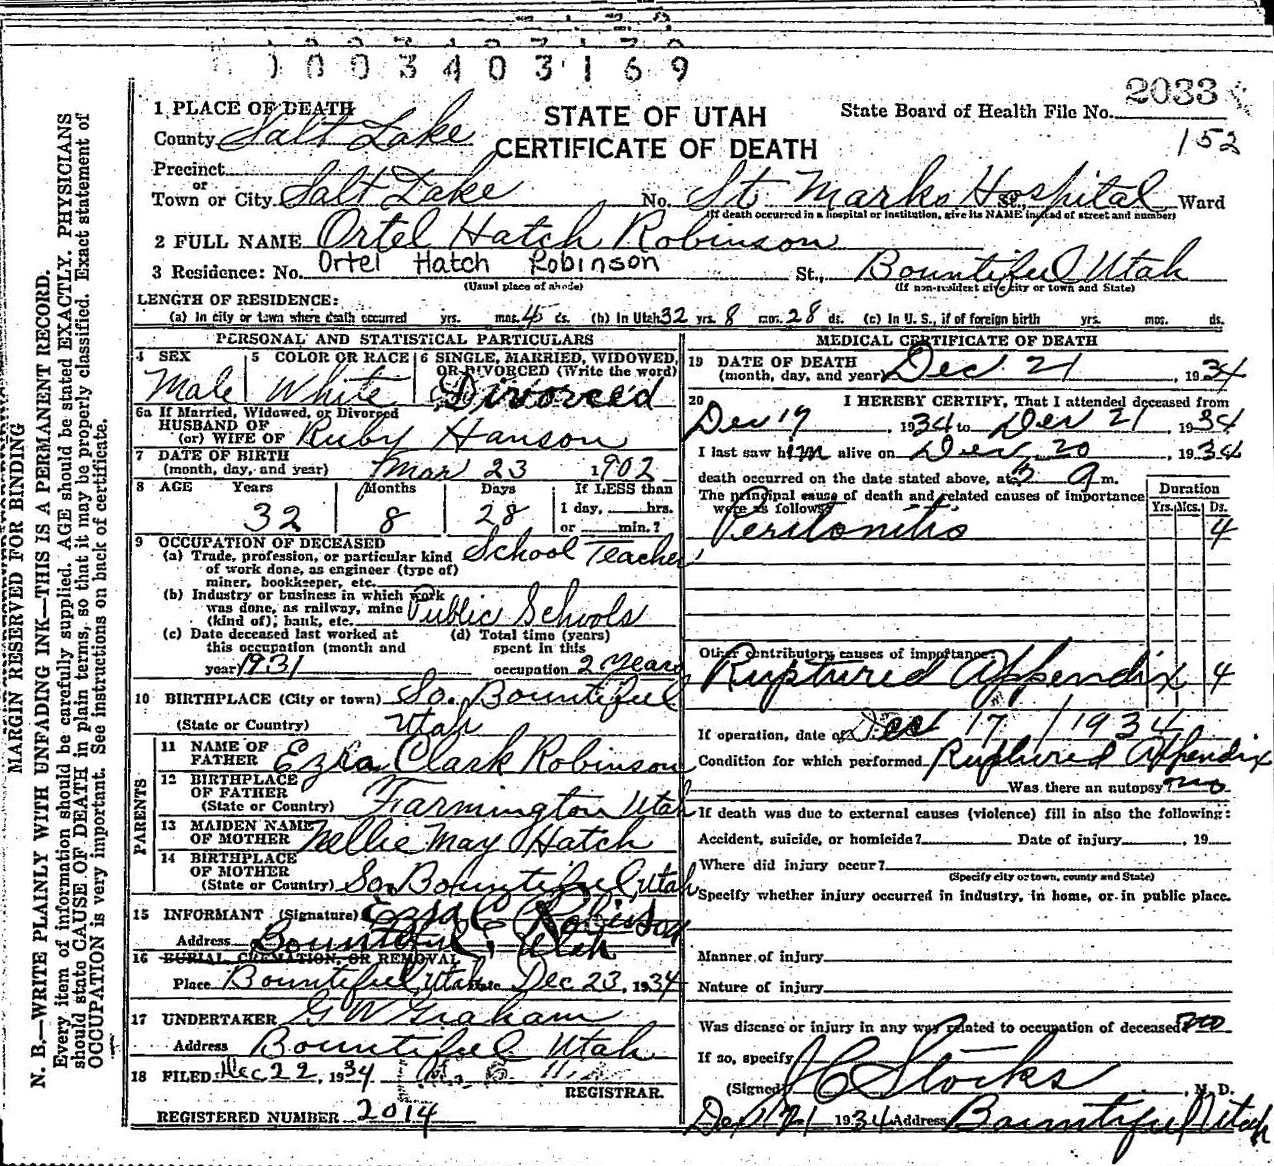 1003403169
2033
1 PLACE OF DEATH
STATE OF UTAH
State Board of Health File No.
County Salt Lake
CERTIFICATE OF DEATH
152
Precinct
or
Town or City Salt Lake No. St Marks Hospital St., Ward
(If death occurred in a hospital or institution, give its NAME instead of street and number)
2 FULL NAME Ortel Hatch Robinson
3 Residence: No. Ortel Hatch Robinson St., Bountiful Utah
(Usual place of abode) (If non-resident give city or town and State)
LENGTH OF RESIDENCE:
(a) In city or town where death occurred yrs. mos. 4 ds. (b) In Utah 32 yrs. 8 mos. 28 ds. (c) In U. S., if of foreign birth yrs. mos. ds.
PERSONAL AND STATISTICAL PARTICULARS
4 SEX
Male
5 COLOR OR RACE
White
6 SINGLE, MARRIED, WIDOWED,
OR DIVORCED (Write the word)
Divorced
6a If Married, Widowed, or Divorced
HUSBAND OF
(or) WIFE OF Ruby Hanson
7 DATE OF BIRTH
(month, day, and year) Mar 23 1902
8 AGE Years Months Days If LESS than
1 day, hrs.
32 8 28 or min.?
9 OCCUPATION OF DECEASED
(a) Trade, profession, or particular kind School Teacher
of work done, as engineer (type of)
miner, bookkeeper, etc.
(b) Industry or business in which work
was done, as railway, mine Public Schools
(kind of); bank, etc.
(c) Date deceased last worked at (d) Total time (years)
this occupation (month and spent in this
year) 1931 occupation 2 Years
10 BIRTHPLACE (City or town) So. Bountiful
(State or Country) Utah
PARENTS
11 NAME OF
FATHER Ezra Clark Robinson
12 BIRTHPLACE
OF FATHER
(State or Country) Farmington Utah
13 MAIDEN NAME
OF MOTHER Nellie May Hatch
14 BIRTHPLACE
OF MOTHER
(State or Country) So. Bountiful Utah
15 INFORMANT (Signature) Ezra C Robinson
Address Bountiful, Utah
16 BURIAL, CREMATION, OR REMOVAL
Place Bountiful, Utah Date Dec 23, 1934
17 UNDERTAKER G W Graham
Address Bountiful Utah
18 FILED: Dec 22, 1934
REGISTRAR.
REGISTERED NUMBER 2014
MEDICAL CERTIFICATE OF DEATH
19 DATE OF DEATH
(month, day, and year) Dec 21, 1934
20 I HEREBY CERTIFY, That I attended deceased from
Dec 17, 1934 to Dec 21 1934
I last saw him alive on Dec, 20, 1934
death occurred on the date stated above, at 3 a m.
The principal cause of death and related causes of importance
were as follows:
Duration
Yrs. Mos. Ds.
Peritonitis 4
Other contributory causes of importance:
Ruptured Appendix 4
If operation, date of Dec 17 / 1934
Condition for which performed Ruptured Appendix
Was there an autopsy? no
If death was due to external causes (violence) fill in also the following:
Accident, suicide, or homicide? Date of injury , 19
Where did injury occur?
(Specify city or town, county and State)
Specify whether injury occurred in industry, in home, or in public place.
Manner of injury
Nature of injury
Was disease or injury in any way related to occupation of deceased? no
If so, specify
(Signed) J C Stocks , M. D.
Dec 21 1934 Address Bountiful Utah
MARGIN RESERVED FOR BINDING
N. B.—WRITE PLAINLY WITH UNFADING INK—THIS IS A PERMANENT RECORD.
Every item of information should be carefully supplied. AGE should be stated EXACTLY. PHYSICIANS
should state CAUSE OF DEATH in plain terms, so that it may be properly classified. Exact statement of
OCCUPATION is very important. See instructions on back of certificate.